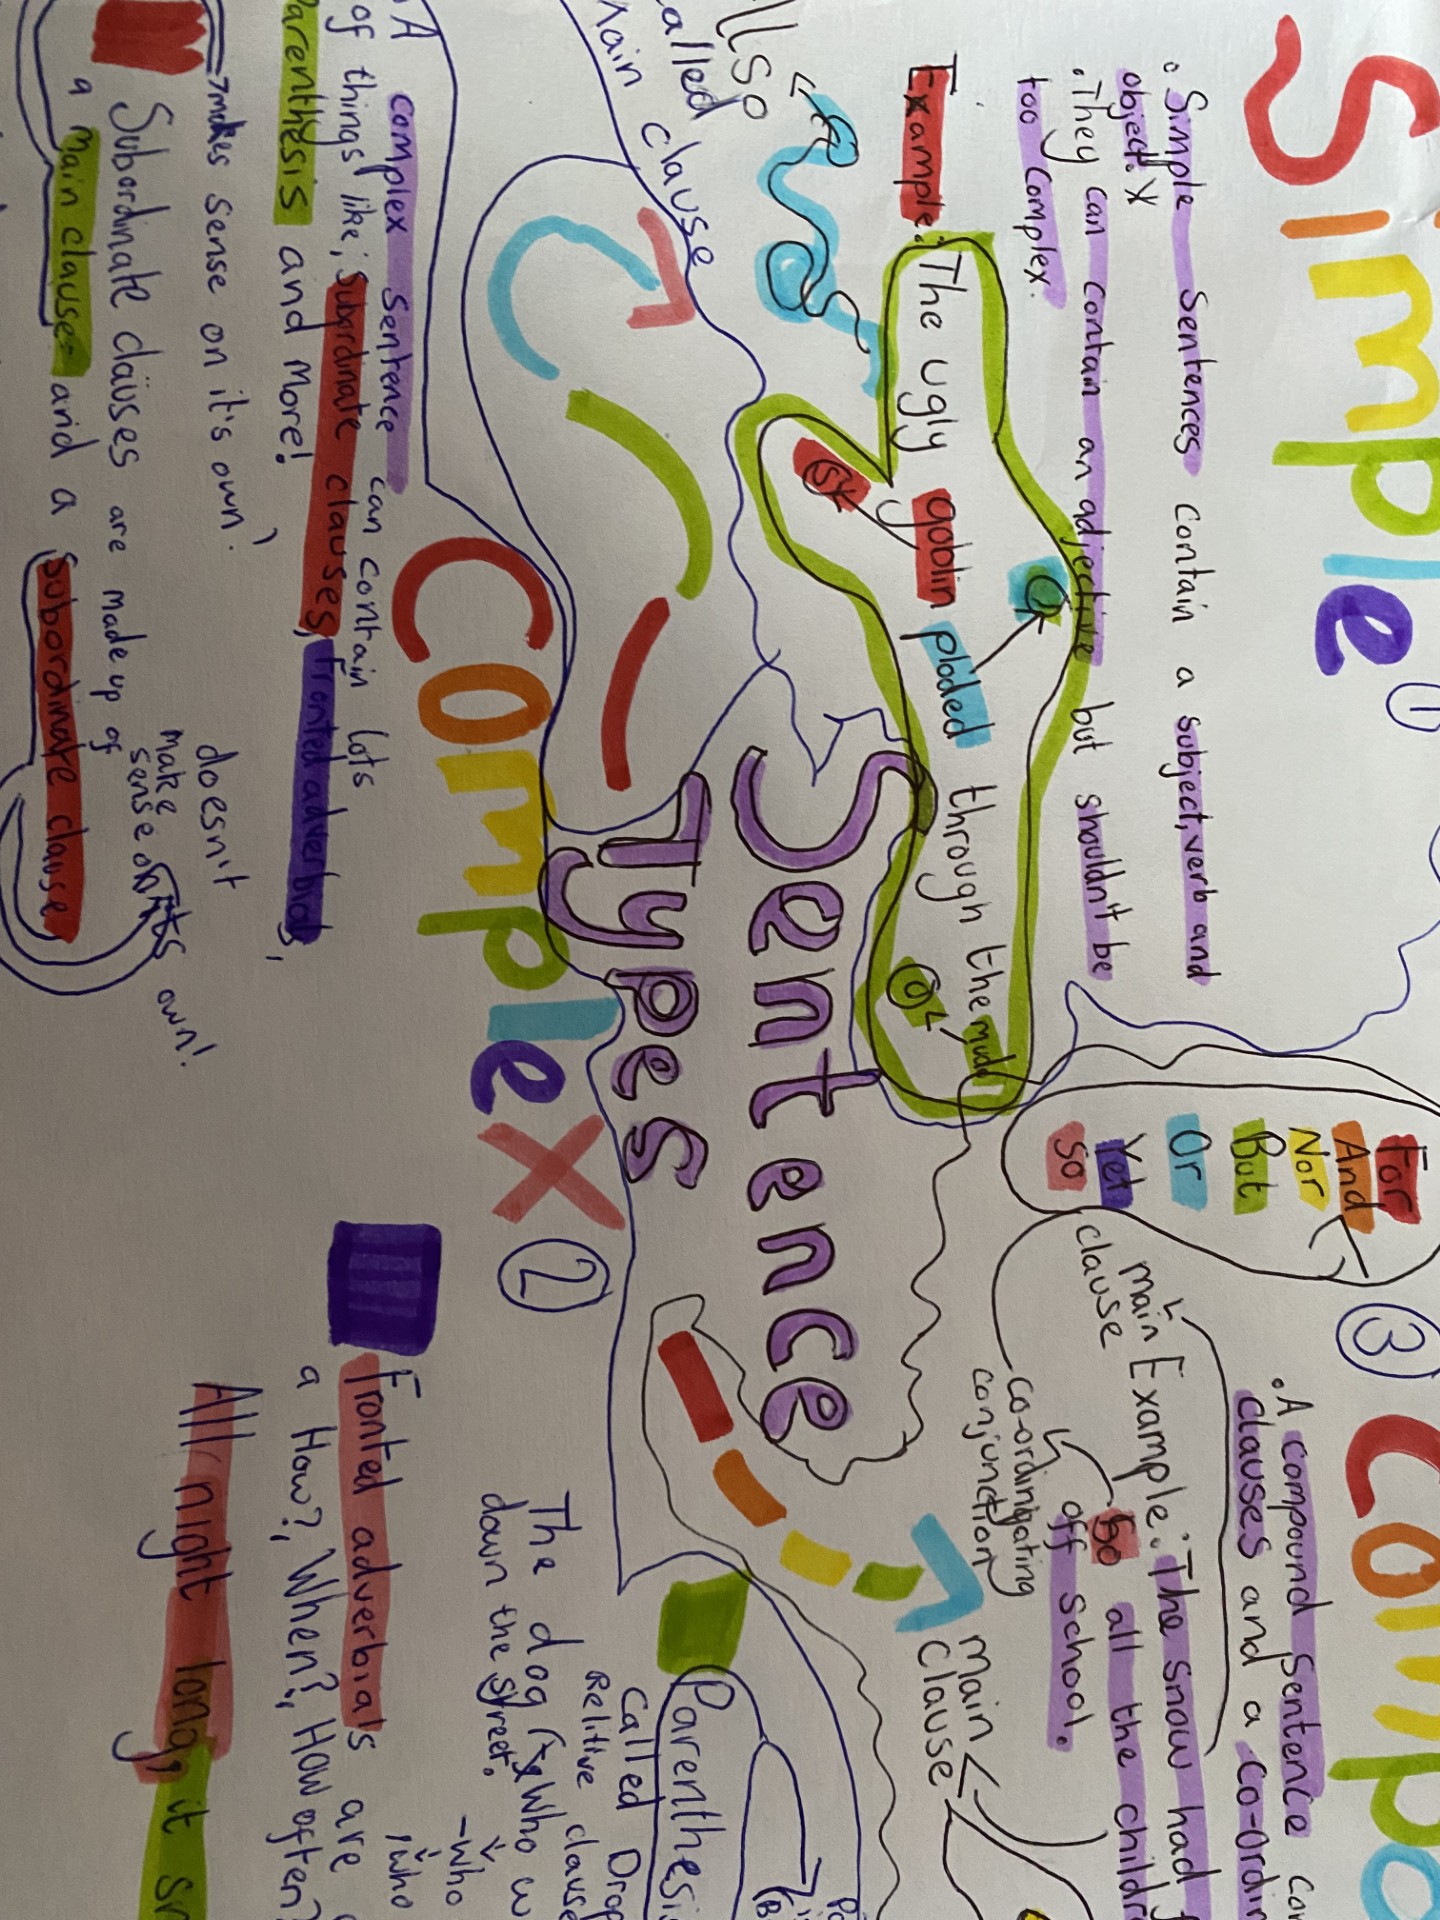 Simple ①
• Simple Sentences contain a subject, verb and
object.
• They can contain an adjective but shouldn't be
too complex.
Example: The ugly goblin ploded through the mud
S
V
O
Also
called
main clause
Sentence
Types
For
And
Nor
But
Or
Yet
So
③ Compo
• A compound sentence
clauses and a co-ordin
main
clause
Example: The snow had
so all the childr
off school.
co-ordingating
conjunction
main
clause
Complex ②
A complex sentence can contain lots
of things like; Subordinate clauses, fronted adverbials,
Parenthesis and more!
makes sense on it's own.
Subordinate clauses are made up of
a main clause and a subordinate clause
doesn't
make
sense on its own!
Fronted adverbials are
a How?, When?, How often?
All night long, it sn
Parenthesi
Called Drop
Relitive clause
The dog (who w
down the street.
-who
, who